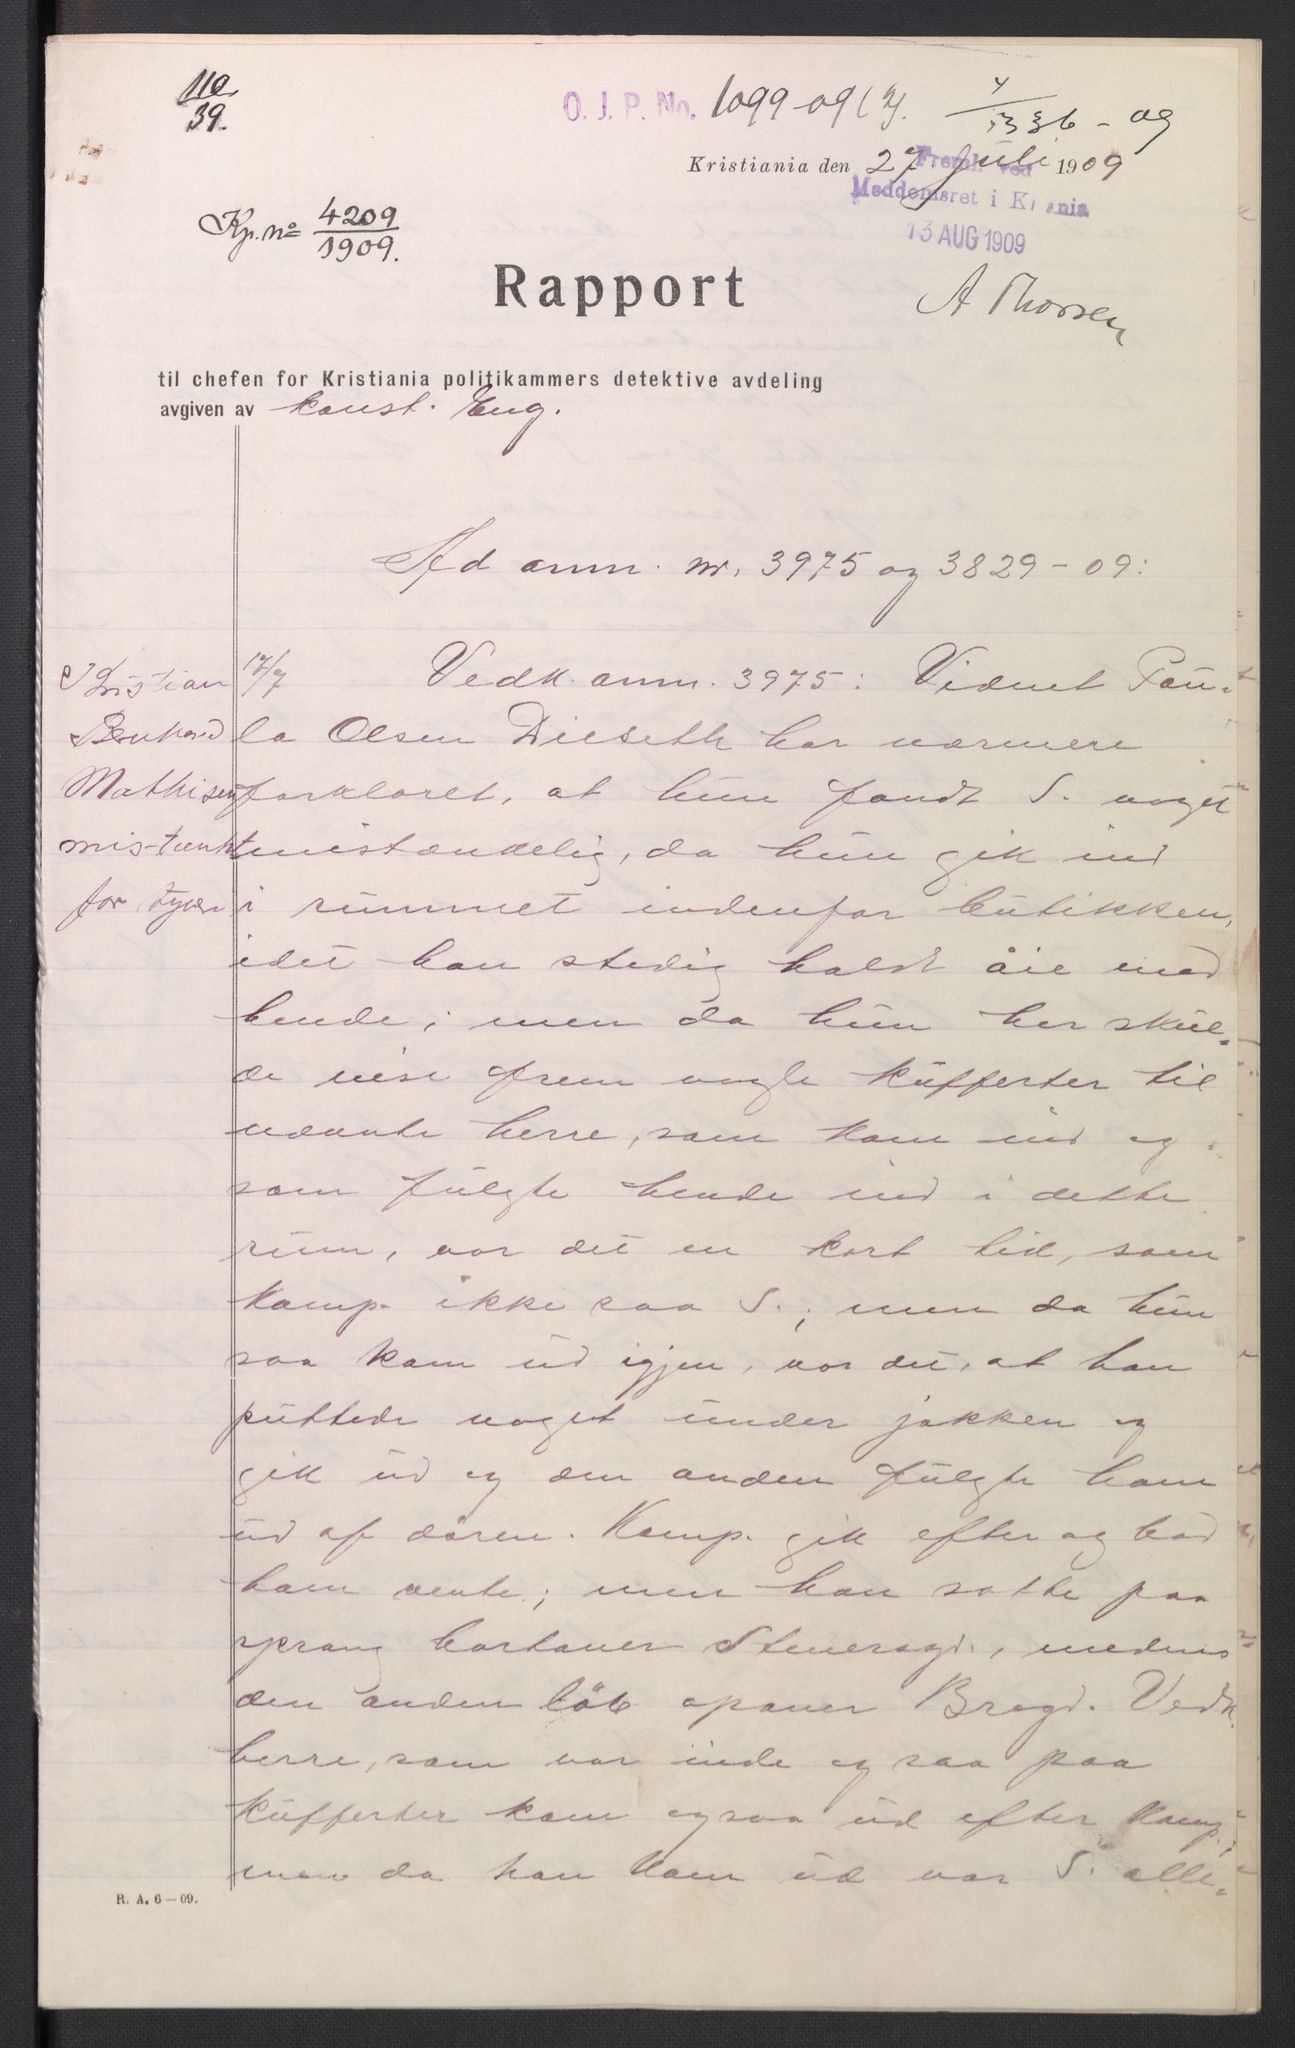 110.
39.
O. J. P. No. 1099-09
4
1336-09
Kristiania den 27 Juli 1909
Freml. ved
Meddomsret i Kr ania
13 AUG 1909
A Thorsen
Kp. no 4209
1909.
Rapport
til chefen for Kristiania politikammers detektive avdeling
avgiven av konst. Eng.
Ad anm. nr. 3975 og 3829-09:
Kristian
Bernhard
Mathisen
mistænkt
for tyveri
17/7 Vedk. anm. 3975: Vidnet Pau-
la Olsen Dieseth har nærmere
forklaret, at hun fandt S. noget
mistænkelig, da hun gik ind
i rummet indenfor butikken,
idet han stedig holdt øie med
hende; men da hun her skul-
de vise frem nogle kufferter til
nævnte herre, som kom ind og
som fulgte hende ind i dette
rum, var det en kort tid, som
komp. ikke saa S.; men da hun
saa kom ud igjen, var det, at han
puttede noget under jakken og
gik ud og den anden fulgte ham
ud af døren. Komp. gik efter og bad
ham vente; men han satte paa
sprang bortover Stenersgd., medens
den anden løb opover Brogd. Vedk.
herre, som var inde og saa paa
kufferter kom ogsaa ud efter komp.;
men da han kom ud var S. alle-
R. A. 6—09.